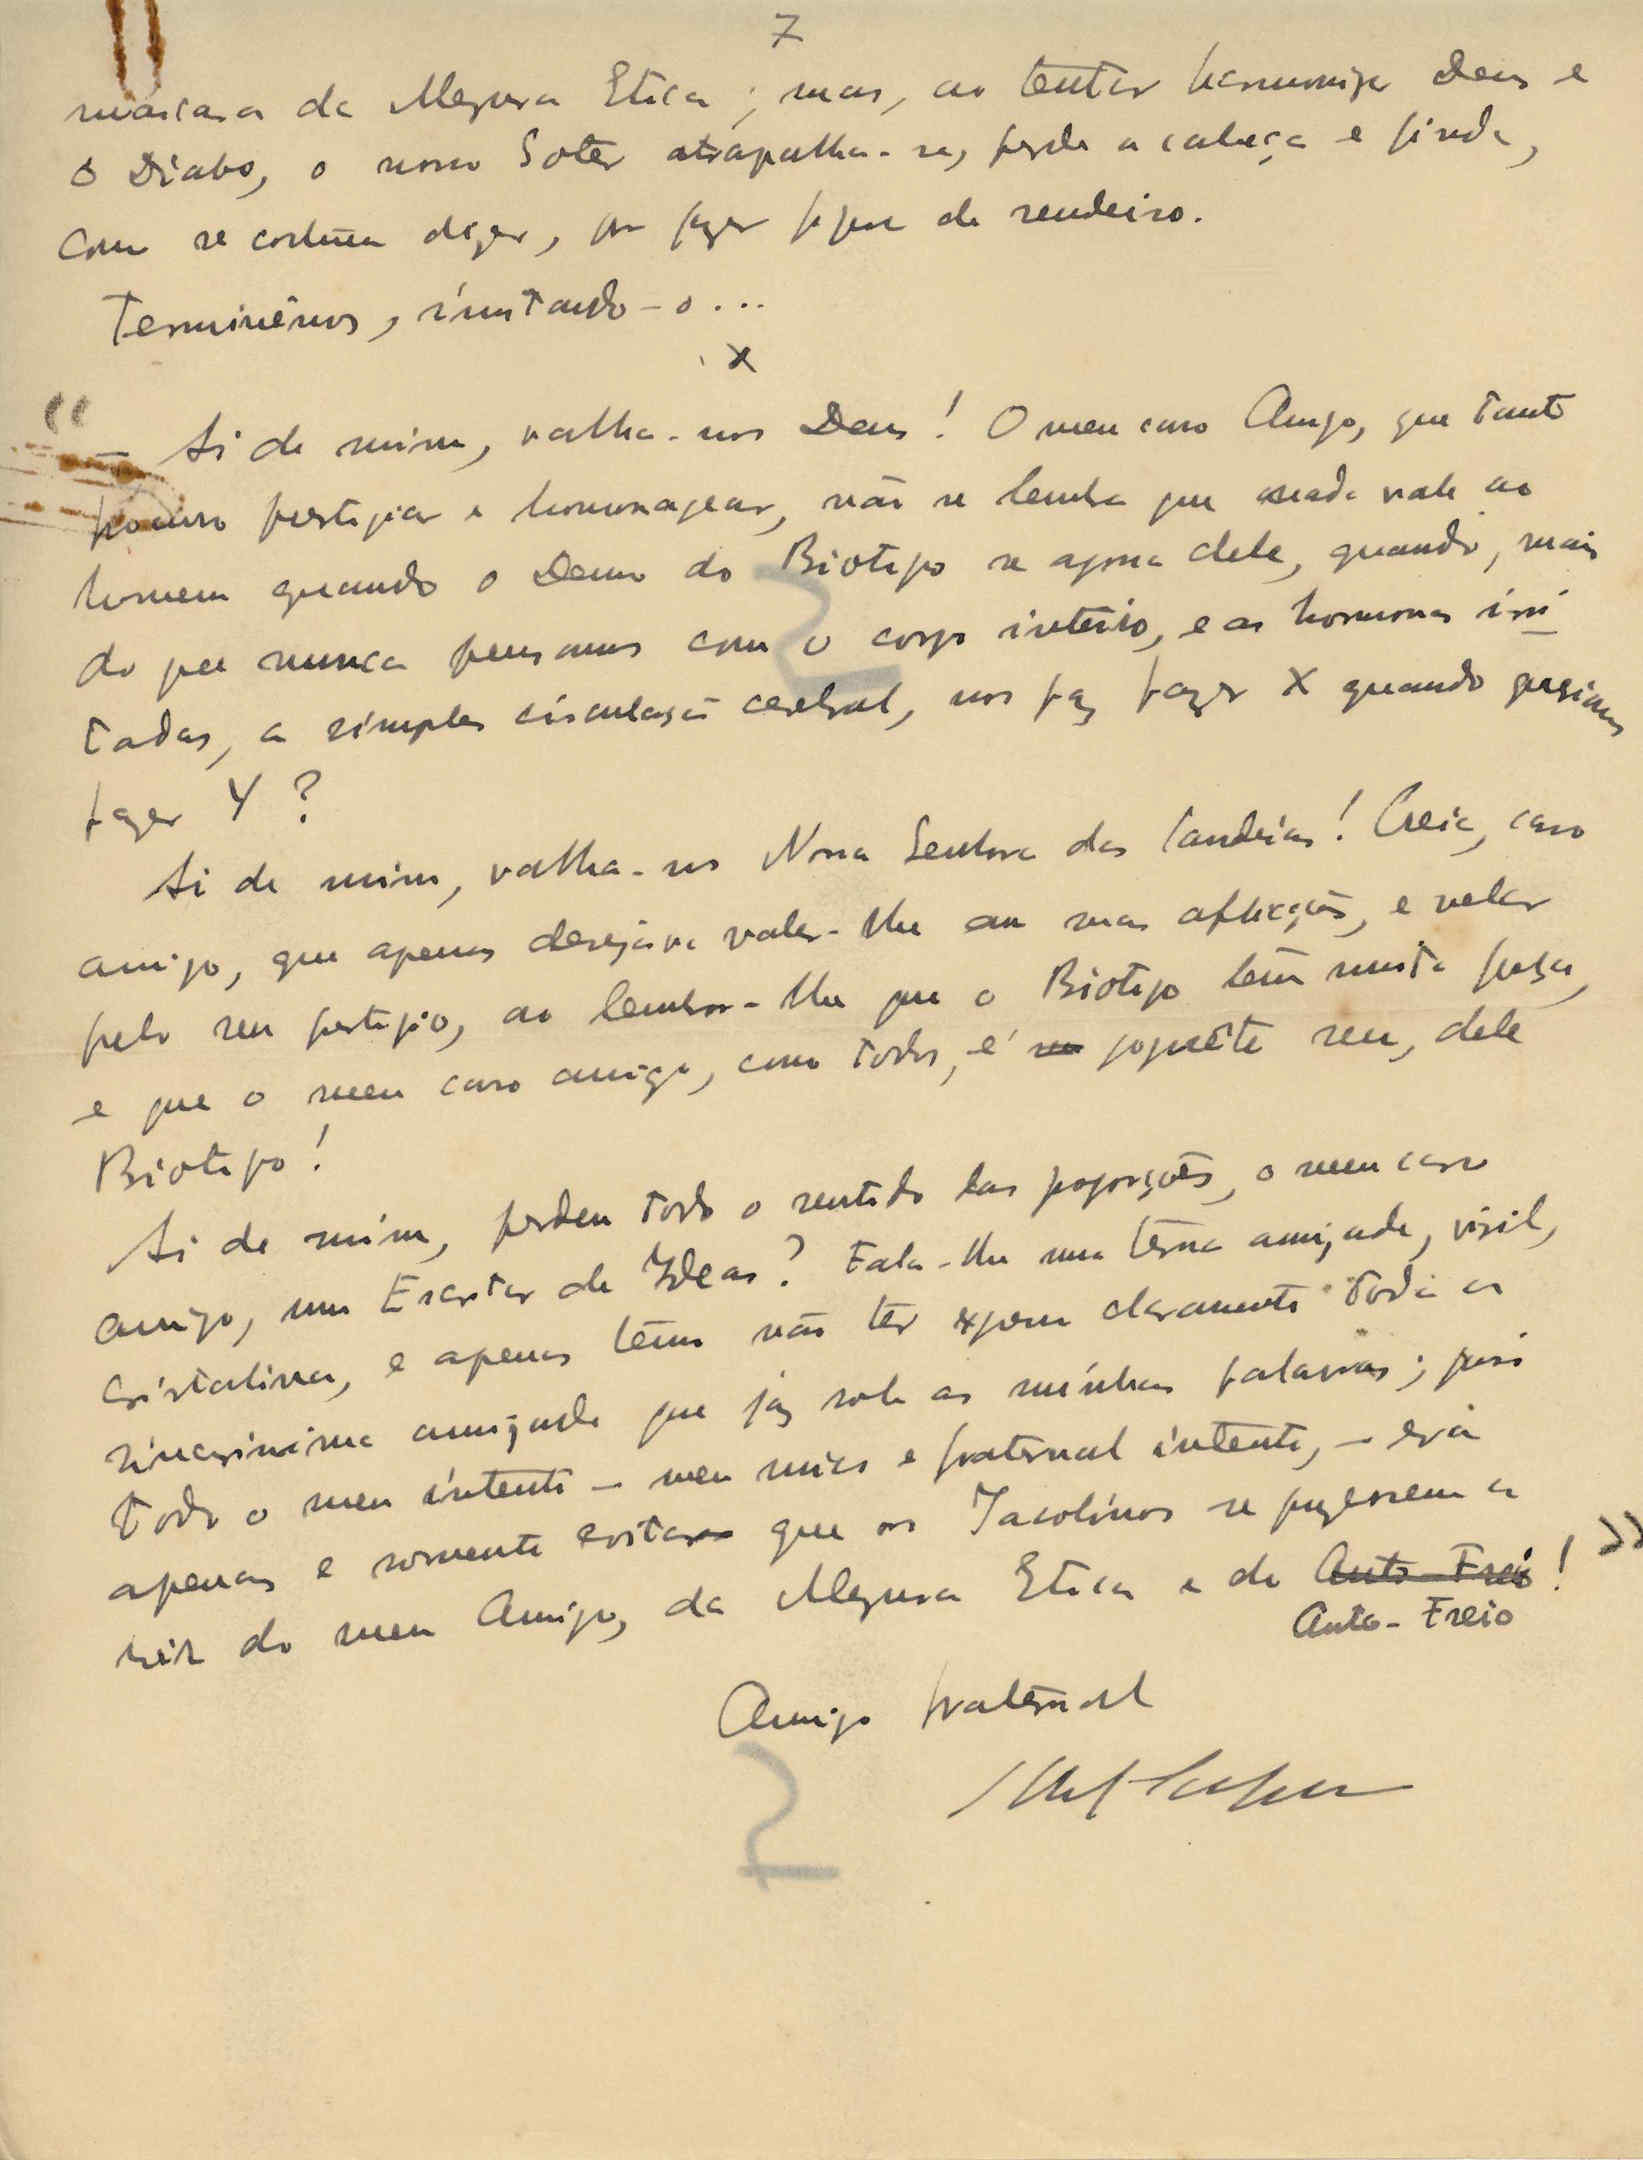 7
mascara da Magna Etica; mas, ao tentar harmonizar Deus e
o Diabo, o nosso Soter atrapalha-se, perde a cabeça e finda,
Como se costuma dizer, por fazer figura de sendeiro.
Terminêmos, imitando-o...
x
" — Ai de mim, valha-nos Deus! O meu caro Amigo, que tanto
procuro prestigiar e homenagear, não se lembra que nada vale ao
homem quando o Demo do Biotipo se apossa dele, quando, mais
do que nunca pensamos com o corpo inteiro, e as hormonas irri
tadas, a simples circulação cerebral, nos faz fazer X quando queriamos
fazer Y?
Ai de mim, valha-nos Nossa Senhora das Candeias! Creia, caro
amigo, que apenas desejava valer-lhe em suas aflicções, e velar
pelo seu prestigio, ao lembrar-lhe que o Biotipo tem muita força,
e que o meu caro amigo, como todos, é joguête seu, dele
Biotipo!
Ai de mim, perdeu todo o sentido das proporções, o meu caro
amigo, um Escritor de Ideas? Fala-lhe uma terna amizade, vigil,
Cristalina, e apenas temo não ter exposto claramente toda a
sincerissima amizade que jaz sob as minhas palavras; pois
todo o meu intento — meu unico e fraternal intento, — era
apenas e somente evitar que os Jacobinos se puzessem a
rir do meu Amigo, da Magna Etica e do Auto-Freio! »
Auto-Freio
Amigo fraternal